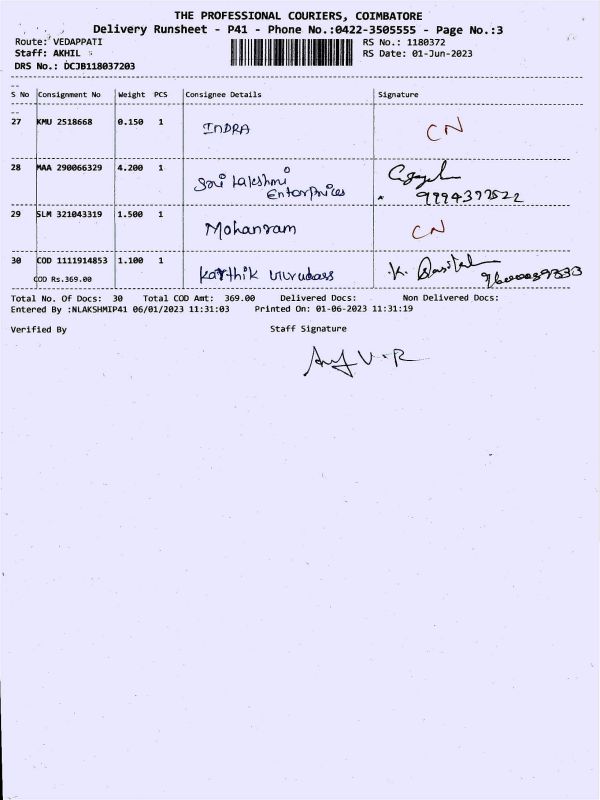 THE PROFESSIONAL COURIERS, COIMBATORE
Delivery Runsheet - P41 - Phone No.:0422-3505555 - Page No.:3
Route: VEDAPPATI RS No.: 1180372
Staff: AKHIL RS Date: 01-Jun-2023
DRS No.: DCJB118037203
S No Consignment No Weight PCS Consignee Details Signature
27 KMU 2518668 0.150 1 INDRA CN
28 MAA 290066329 4.200 1 Sri Lakshmi
Enterprices
29 SLM 321043319 1.500 1 Mohanram CN
30 COD 1111914853 1.100 1 Karthik K.
COD Rs.369.00
Total No. Of Docs: 30 Total COD Amt: 369.00 Delivered Docs: Non Delivered Docs:
Entered By :NLAKSHMIP41 06/01/2023 11:31:03 Printed On: 01-06-2023 11:31:19
Verified By Staff Signature